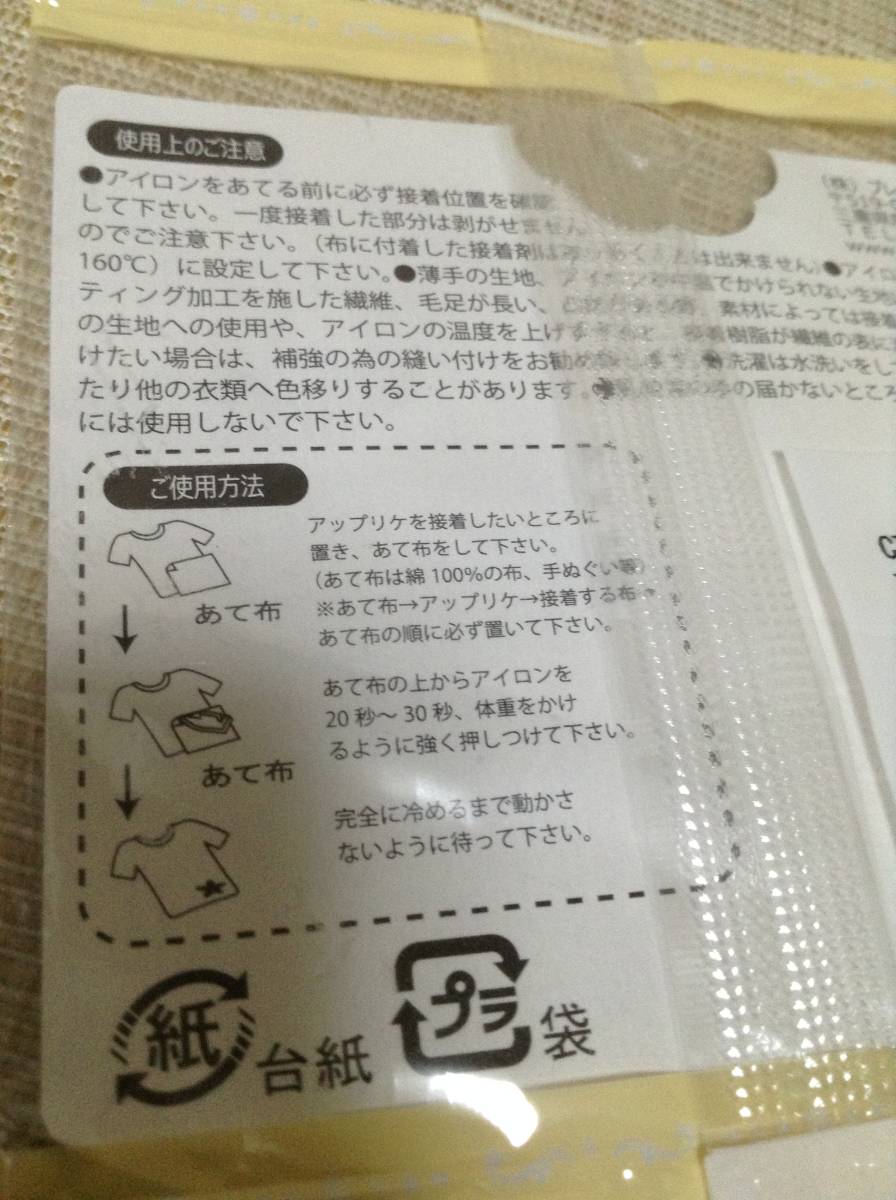 使用上のご注意
●アイロンをあてる前に必ず接着位置を確認
して下さい。一度接着した部分は剥がせません
のでご注意下さい。(布に付着した接着剤は とは出来ません)●アイロ
160℃)に設定して下さい。●薄手の生地、アイロンを中温でかけられない生地
ティング加工を施した繊維、毛足が長い、 素材によっては接着
の生地への使用や、アイロンの温度を上げすぎると 接着樹脂が繊維の表に
けたい場合は、補強の為の縫い付けをお勧め致します。●洗濯は水洗いをして
たり他の衣類へ色移りすることがあります。● の届かないところ
には使用しないで下さい。
(株)
TEL
www.
ご使用方法
アップリケを接着したいところに
置き、あて布をして下さい。
(あて布は綿100%の布、手ぬぐい等)
※あて布→アップリケ→接着する布→
あて布の順に必ず置いて下さい。
あて布
あて布の上からアイロンを
20秒〜30秒、体重をかけ
るように強く押しつけて下さい。
あて布
完全に冷めるまで動かさ
ないように待って下さい。
紙 台紙
プラ 袋